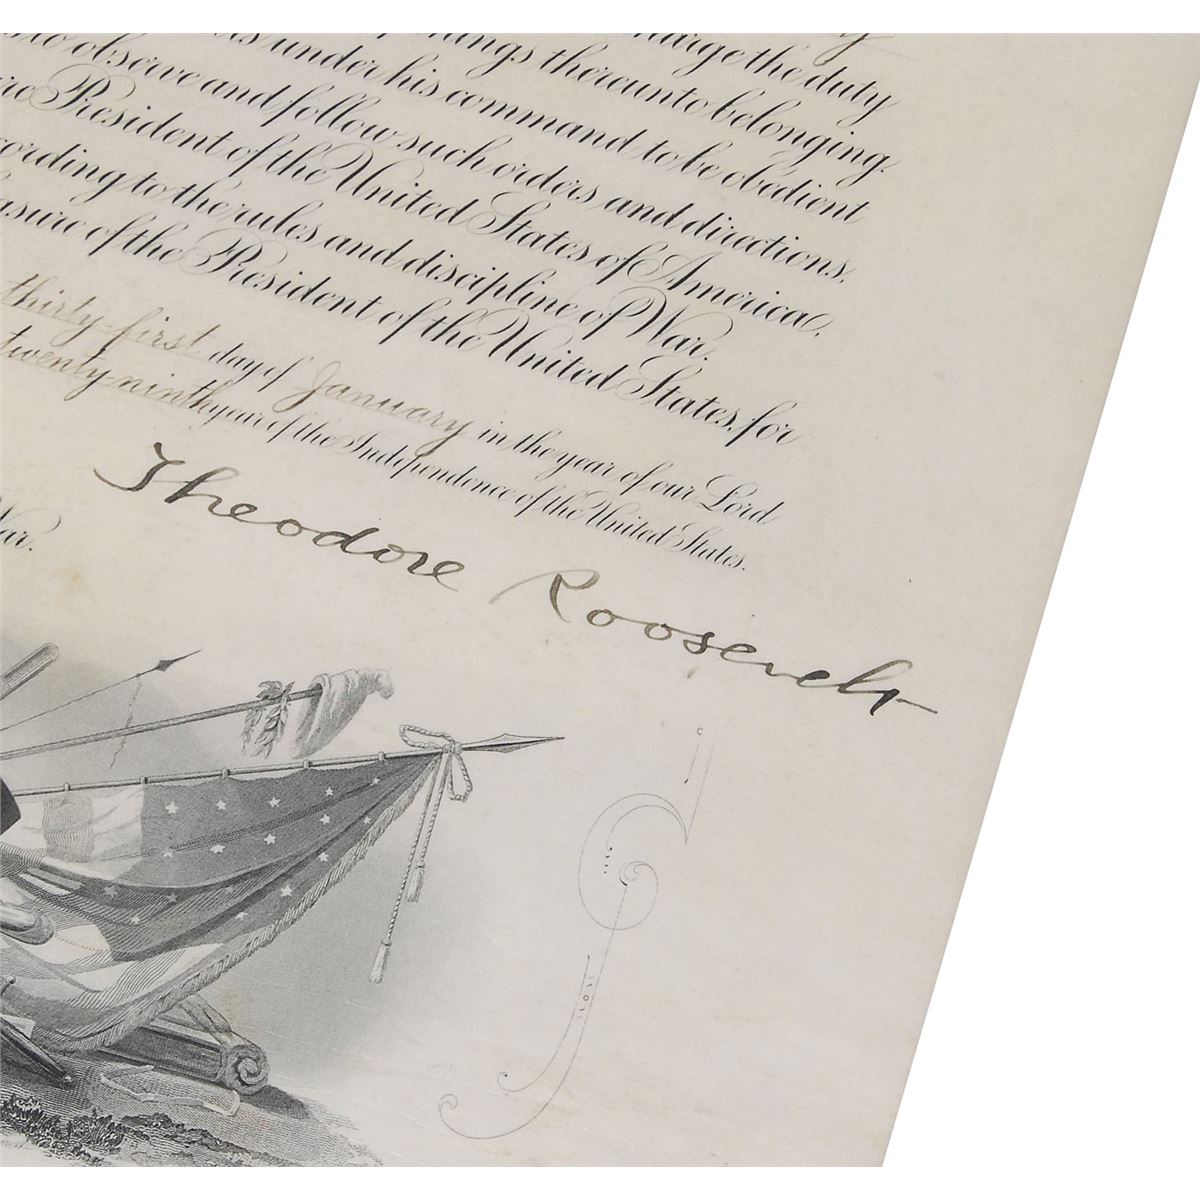 charge the duty
things thereunto belonging.
under his command to be obedient
to observe and follow such orders and directions,
President of the United States of America,
to the rules and discipline of War.
of the President of the United States, for
thirty-first day of January in the year of our Lord
twenty-ninth year of the Independence of the United States.
Theodore Roosevelt
War.